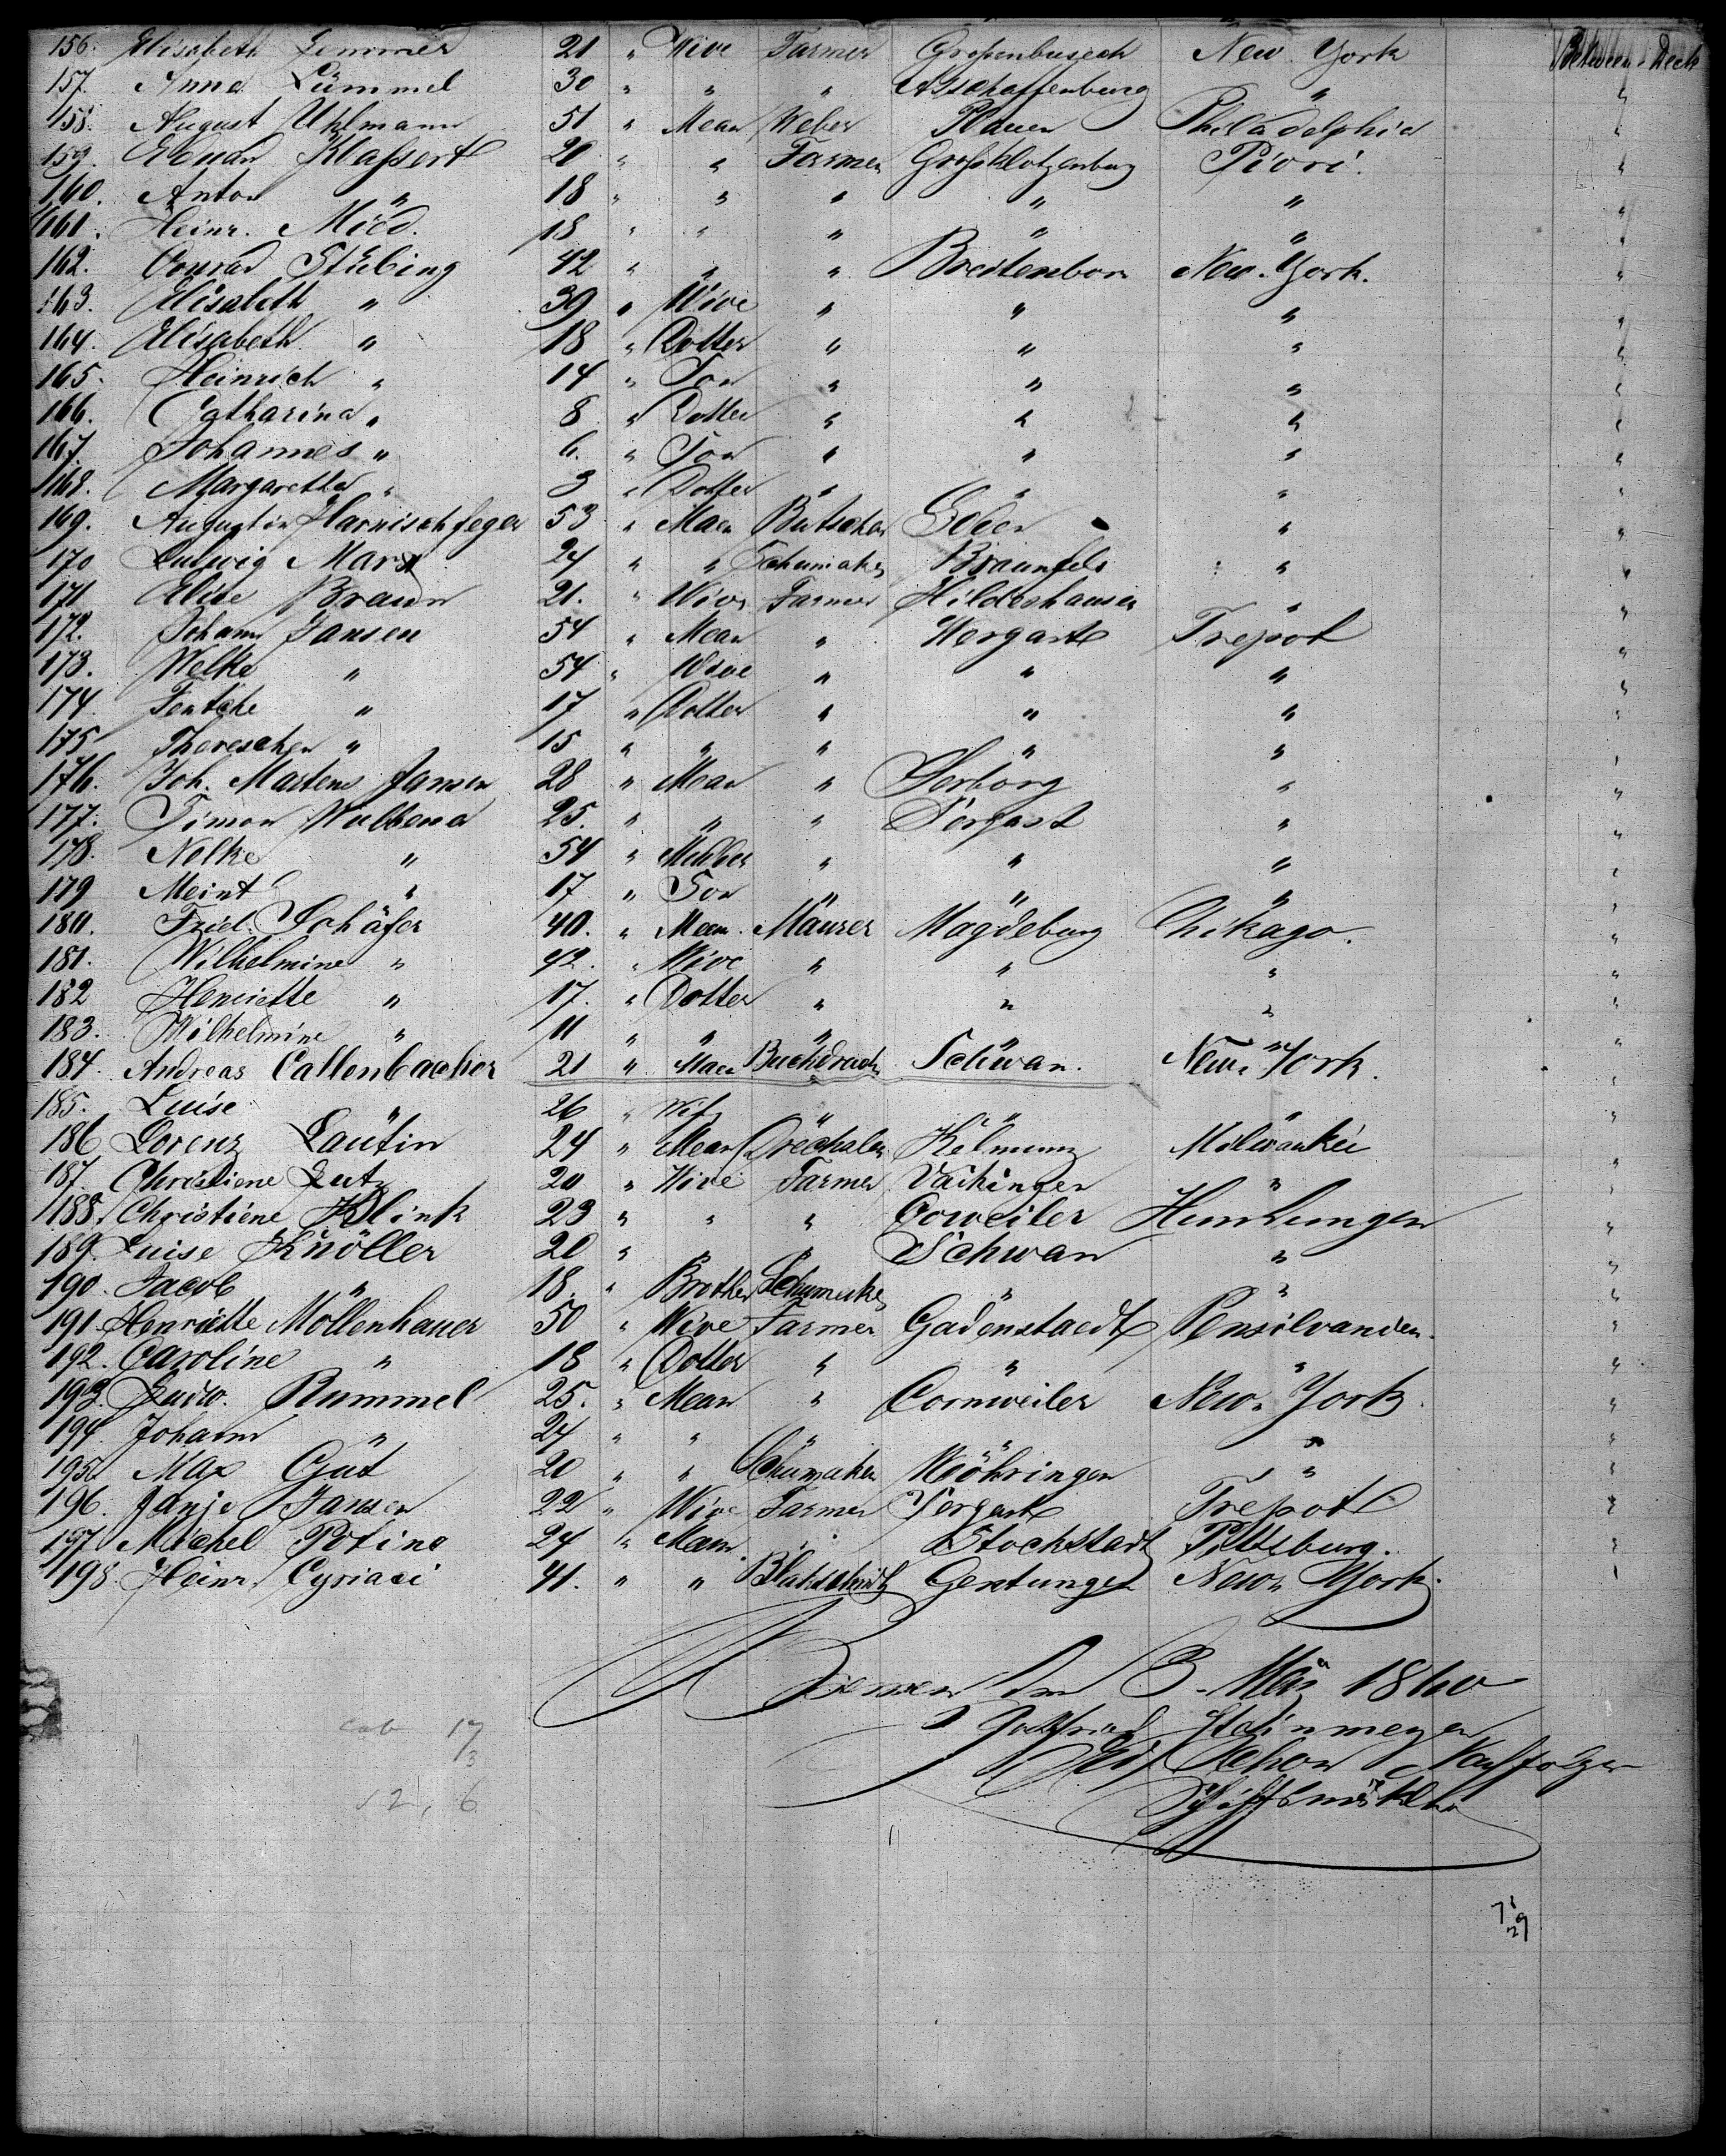 156. Elisabeth Lemmer 21 " Wive Farmer Großenbuseck New York Between Deck
157. Anna Lümmel 30 " " " Aschaffenburg " "
158. August Uhlmann 51 " Mean Weber Plauen Philadelphia "
159. Eduard Klaßert 20 " " Farmer Großklotzenburg Piori. "
160. Anton " 18 " " " " " "
161. Heinr. Mied. 18 " " " " " "
162. Conrad Stübing 42 " " " Breitenborn New York. "
163. Elisabeth " 39 " Wive " " " "
164. Elisabeth " 18 " Dotter " " " "
165. Heinrich " 14 " Son " " " "
166. Catharina " 8 " Dotter " " " "
167. Johannes " 6. " Son " " " "
168. Margaretha " 3 " Dotter " " " "
169. Augustin Harnischfeger 53 " Mean Butscher " "
170 Ludwig Marx 24 " " Schumaker Braunfels " "
171 Elise Braun 21. " Wive Farmer Hildeshausen " "
172. Johann Jansen 54 " Mean " Wergast Trepot "
173. Welke " 54 " Wive " " " "
174. Fentche " 17 " Dotter " " " "
175 Thereschen " 15 " " " " " "
176. Joh. Martens Jansen 28 " Mean " " "
177. Simon Wubbena 25. " " " " "
178. Nolke " 54 " Mudher " " " "
179 Meint " 17 " Son " " " "
180. Fried. Schäfer 40. " Mean Maurer Magdeburg Chikago. "
181. Wilhelmine " 42. " Wive " " " "
182 Henriette " 17. " Dotter " " " "
183. Wilhelmine " 11 " " " " " "
184. Andreas Callenbacher 21 " Mean Buchdruck Schwan. New York. "
185. Luise " 26 " Wif " " " "
186 Lorenz Lautin 24 " Mean Drechsler Kelmunz Milwaukie "
187. Christiene Lutz 20 " Wive Farmer Vaihingen " "
188. Christiene Klink 23 " " " Coweiler "
189. Luise Knöller 20 " " " Schwan " "
190. Jacob " 18. " Brother Schumeker " " "
191. Henriette Mollenhauer 50 " Wive Farmer Gadenstaedt Pensilvanien. "
192. Caroline " 18 " Dotter " " " "
193. Ludw. Rummel 25. " Mean " Cornweiler New York. "
194. Johann " 24 " " " " " "
195. Max Gut 20 " " Schumaker Möhringen " "
196. Janje Jansen 22 " Wive Farmer Trepot "
197 Michel Potina 24 " Mean " Stockstadt Pittsburg. "
198. Heinr. Cyriaci 41. " " Blakschmit Gentungen New York. "
Bremen den 3. März 1860
Gottfried Steinmeyer
Schon Nachfolger
Schiffsmäkler
cab 17
3
12, 6
78
29